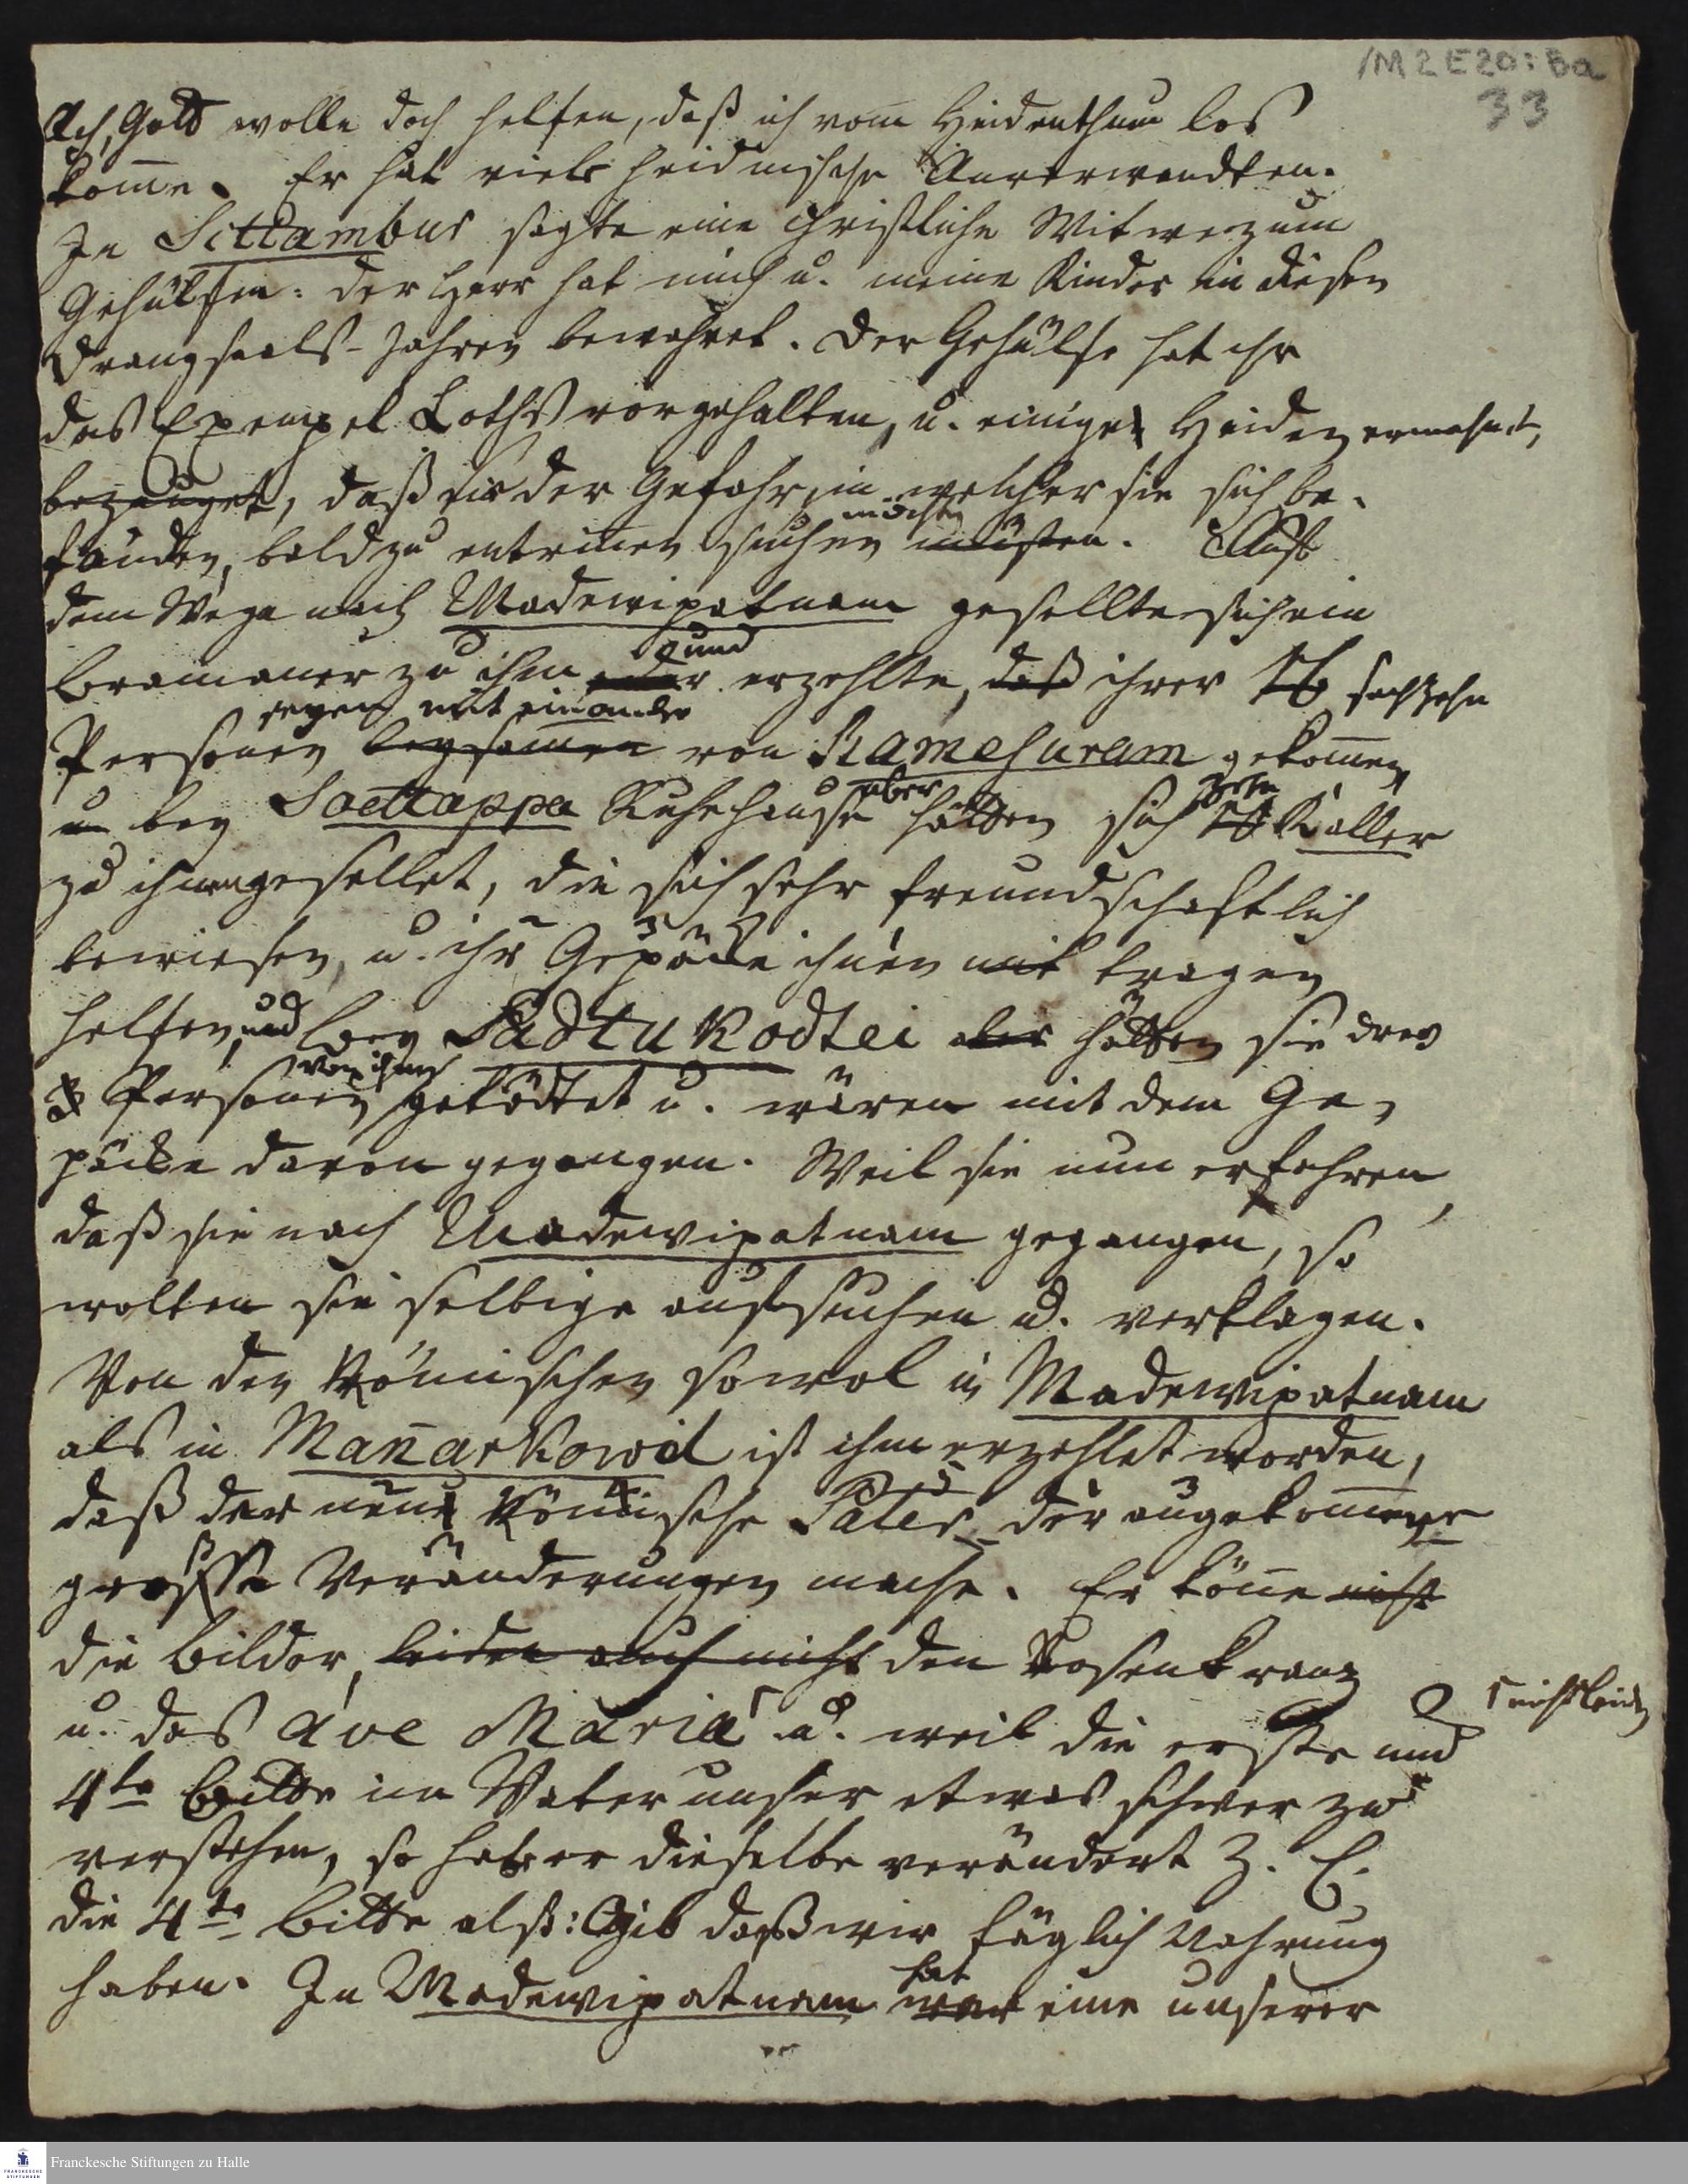 1M2E20:8a
33
Ach, Gott wolle doch helfen, daß ich vom Heidenthum los
kom̅e. Er hat viele heidnische Anverwandten.
In Sittambur sagte eine christliche Witwe zum
Gehülfen: der Herr hat mich u. meine Kinder in diesen
Drangsals-Jahren bewahret. Der Gehülfe hat ihr
das Exempel Loths vorgehalten, u. einige Heiden ermahnt,
bezeuget, daß sie der Gefahr, in welcher sie sich be-
fänden, bald zu entrinnen suchen möchten müsten. Auf
dem Wege nach Madewipatnam gesellte sich ein
Bramaner zu ihm und oder erzehlte, daß ihrer 16 sechzehn
Personen seyen mit einander beysammen von Ramesuram gekom̅en,
u bey Saettappa Ruhehause aber hätten sich 10 zehn Kaller
zu ihnen gesellet, die sich sehr freundschaftlich
bewiesen, u. ihr Gepäcke ihnen mit tragen
helfen, und bey Padtukodtei aber hätten sie drey
3 Personen von ihnen getödtet u. wären mit dem Ge-
päcke davon gegangen. Weil sie nun erfahren,
daß sie nach Madewipatnam gegangen, so
wolten sie selbige aufsuchen u. verklagen.
Von den Römischen sowol in Madewipatnam
als in Man̅arkowil ist ihm erzehlet worden,
daß der neue Römische Pater der angekom̅ene
große Veränderungen mache. Er kön̅e nicht
die Bilder, leiden auch nicht den Rosenkranz
u. das ave Maria u. weil die erste und
nicht leiden
4te Bitte im Vater unser etwas schwer zu
verstehen, so habe er dieselbe verändert z. E.
die 4te Bitte alß: Gib daß wir täglich Nahrung
haben. In Madewipatnam hat war eine unserer
Franckesche Stiftungen zu Halle